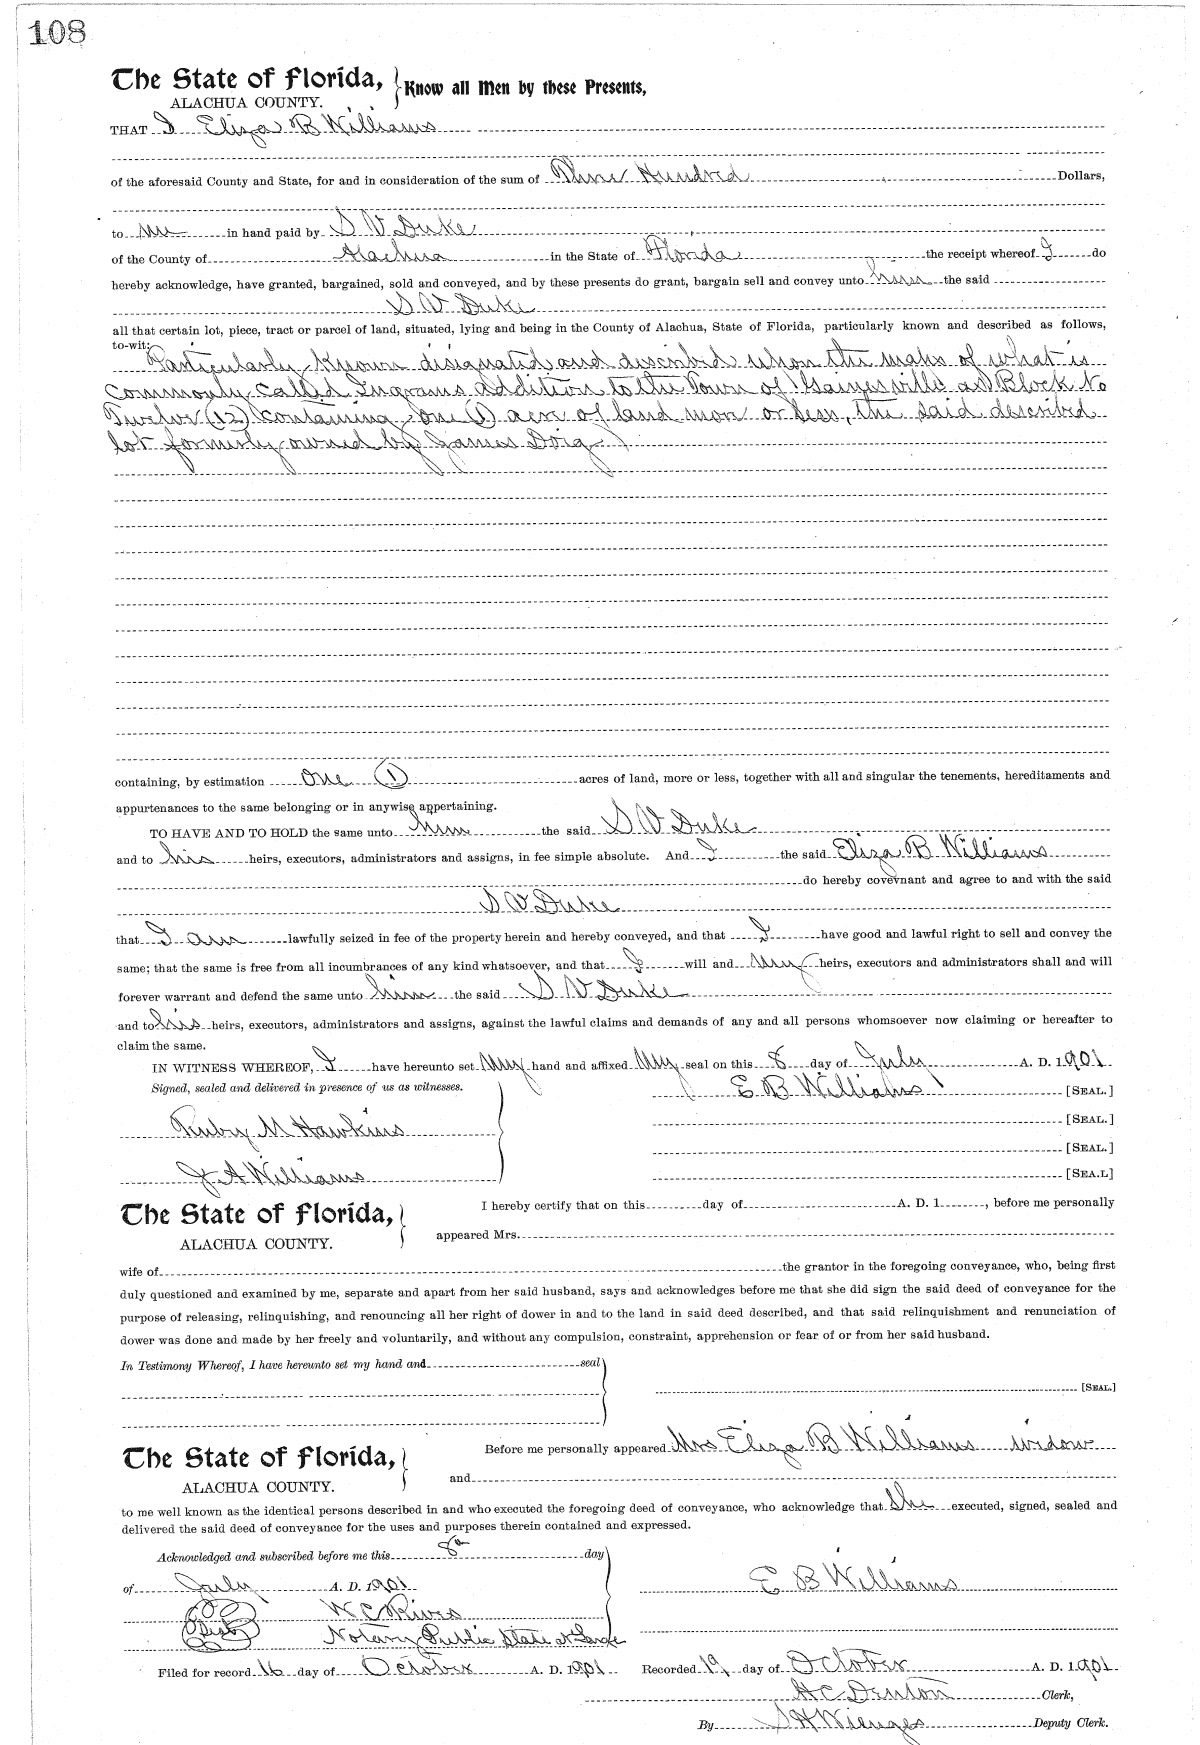 108
The State of Florida, Know all Men by these Presents,
ALACHUA COUNTY.
THAT I Eliza B Williams
of the aforesaid County and State, for and in consideration of the sum of Three Hundred Dollars,
to me in hand paid by S V Duke
of the County of Alachua in the State of Florida the receipt whereof I do
hereby acknowledge, have granted, bargained, sold and conveyed, and by these presents do grant, bargain sell and convey unto him the said
S V Duke
all that certain lot, piece, tract or parcel of land, situated, lying and being in the County of Alachua, State of Florida, particularly known and described as follows,
to-wit:
Particularly Known designated and described upon the maps of what is
commonly called Ingrams Addition to the Town of Gainesville as Block No
Twelve (12) containing one (1) acre of land more or less, the said described
lot formerly owned by James Doig
containing, by estimation one (1) acres of land, more or less, together with all and singular the tenements, hereditaments and
appurtenances to the same belonging or in anywise appertaining.
TO HAVE AND TO HOLD the same unto him the said S V Duke
and to his heirs, executors, administrators and assigns, in fee simple absolute. And I the said Eliza B Williams
do hereby covevnant and agree to and with the said
S V Duke
that I am lawfully seized in fee of the property herein and hereby conveyed, and that I have good and lawful right to sell and convey the
same; that the same is free from all incumbrances of any kind whatsoever, and that I will and my heirs, executors and administrators shall and will
forever warrant and defend the same unto him the said S V Duke
and to his heirs, executors, administrators and assigns, against the lawful claims and demands of any and all persons whomsoever now claiming or hereafter to
claim the same.
IN WITNESS WHEREOF, I have hereunto set my hand and affixed my seal on this 8 day of July A. D. 1901
Signed, sealed and delivered in presence of us as witnesses. E B Williams [SEAL.]
[SEAL.]
Ruby M Hawkins
[SEAL.]
J A Williams [SEA.L]
The State of Florida, I hereby certify that on this day of A. D. 1 , before me personally
ALACHUA COUNTY. appeared Mrs.
wife of the grantor in the foregoing conveyance, who, being first
duly questioned and examined by me, separate and apart from her said husband, says and acknowledges before me that she did sign the said deed of conveyance for the
purpose of releasing, relinquishing, and renouncing all her right of dower in and to the land in said deed described, and that said relinquishment and renunciation of
dower was done and made by her freely and voluntarily, and without any compulsion, constraint, apprehension or fear of or from her said husband.
In Testimony Whereof, I have hereunto set my hand and seal
[SEAL.]
The State of Florida, Before me personally appeared Mrs Eliza B Williams widow
ALACHUA COUNTY. and
to me well known as the identical persons described in and who executed the foregoing deed of conveyance, who acknowledge that she executed, signed, sealed and
delivered the said deed of conveyance for the uses and purposes therein contained and expressed.
Acknowledged and subscribed before me this 8 day
of July A. D. 1901 E B Williams
W C Rivis
Notary Public State at Large
Filed for record 16 day of October A. D. 1901 Recorded 19 day of October A. D. 1901
H C Denton Clerk,
By S H Wienges Deputy Clerk.